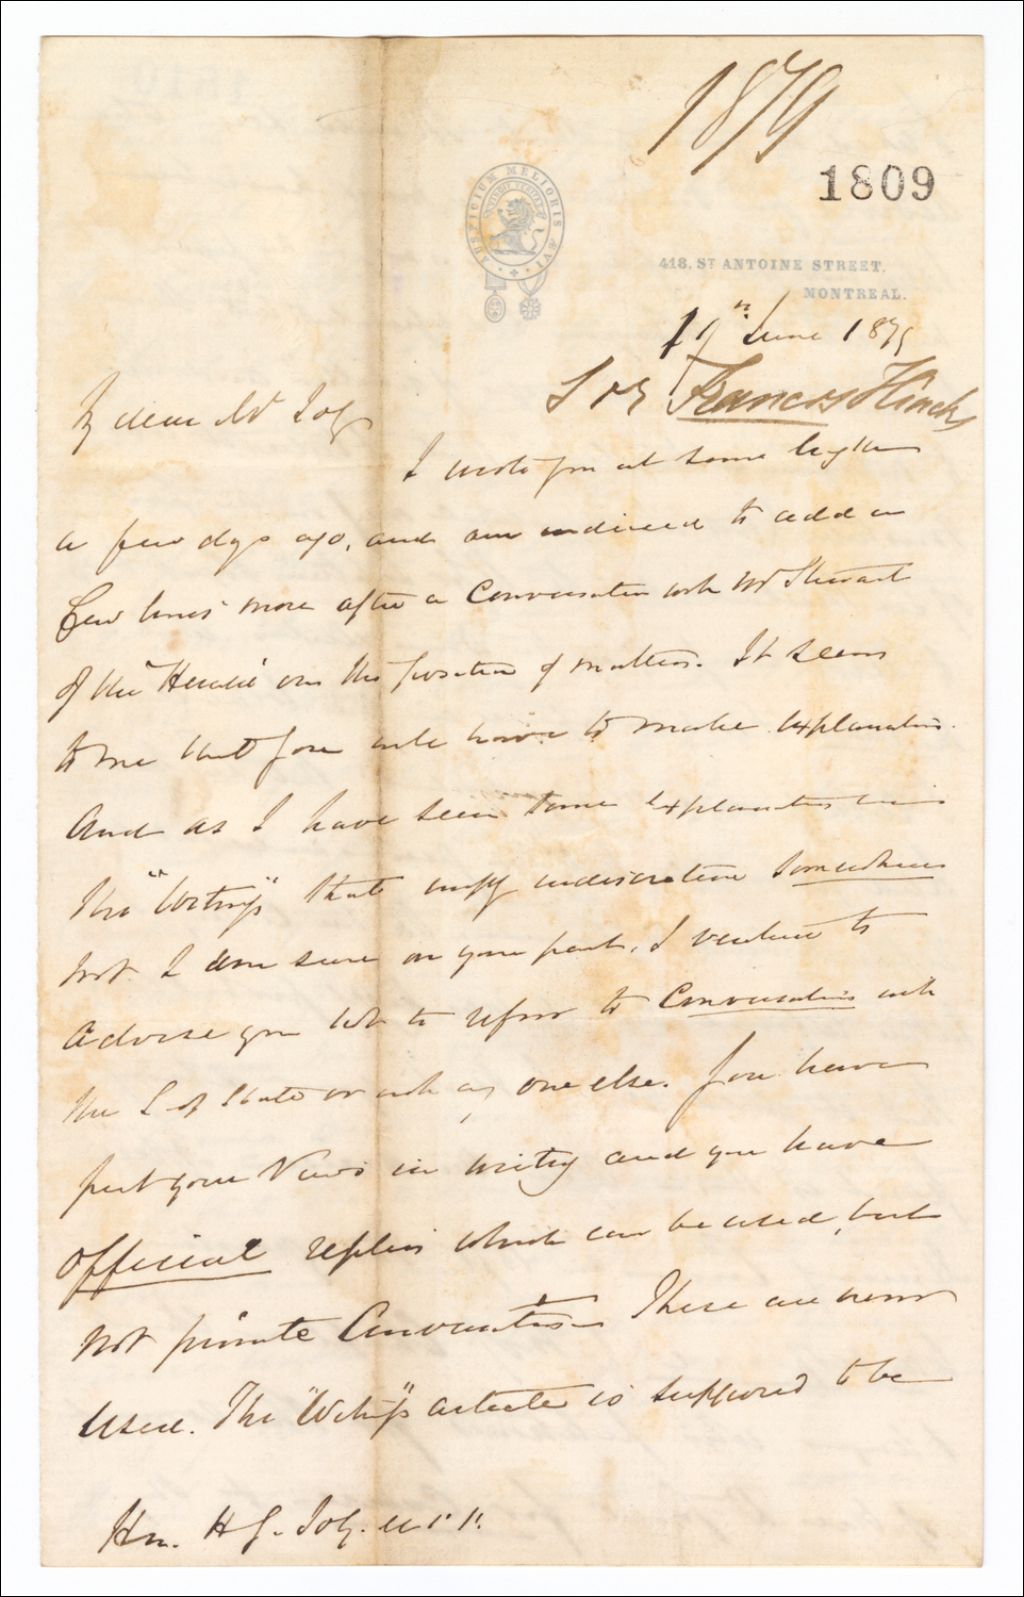 1879
1809
AUSPICIUM MELIORIS ÆVI
418, ST ANTOINE STREET,
MONTREAL.
19th June 1879
Sir Francis Hincks
My dear Mr Joly
I wrote you at some length
a few days ago, and am induced to add a
few lines more after a Conversation with Mr Stewart
of the "Herald" on the position of matters. It seems
to me that you will have to make explanations.
And as I have seen some explanations in
the "Witness" that imply indiscretion somewhere
not I am sure on your part, I venture to
advise you not to refer to Conversations with
the L of State or with any one else. You have
put your Views in writing and you have
official replies which can be used, but
not private Conversations. These are never
used. The "Witness" article is supposed to be
Hon. H G. Joly. M.P.P.